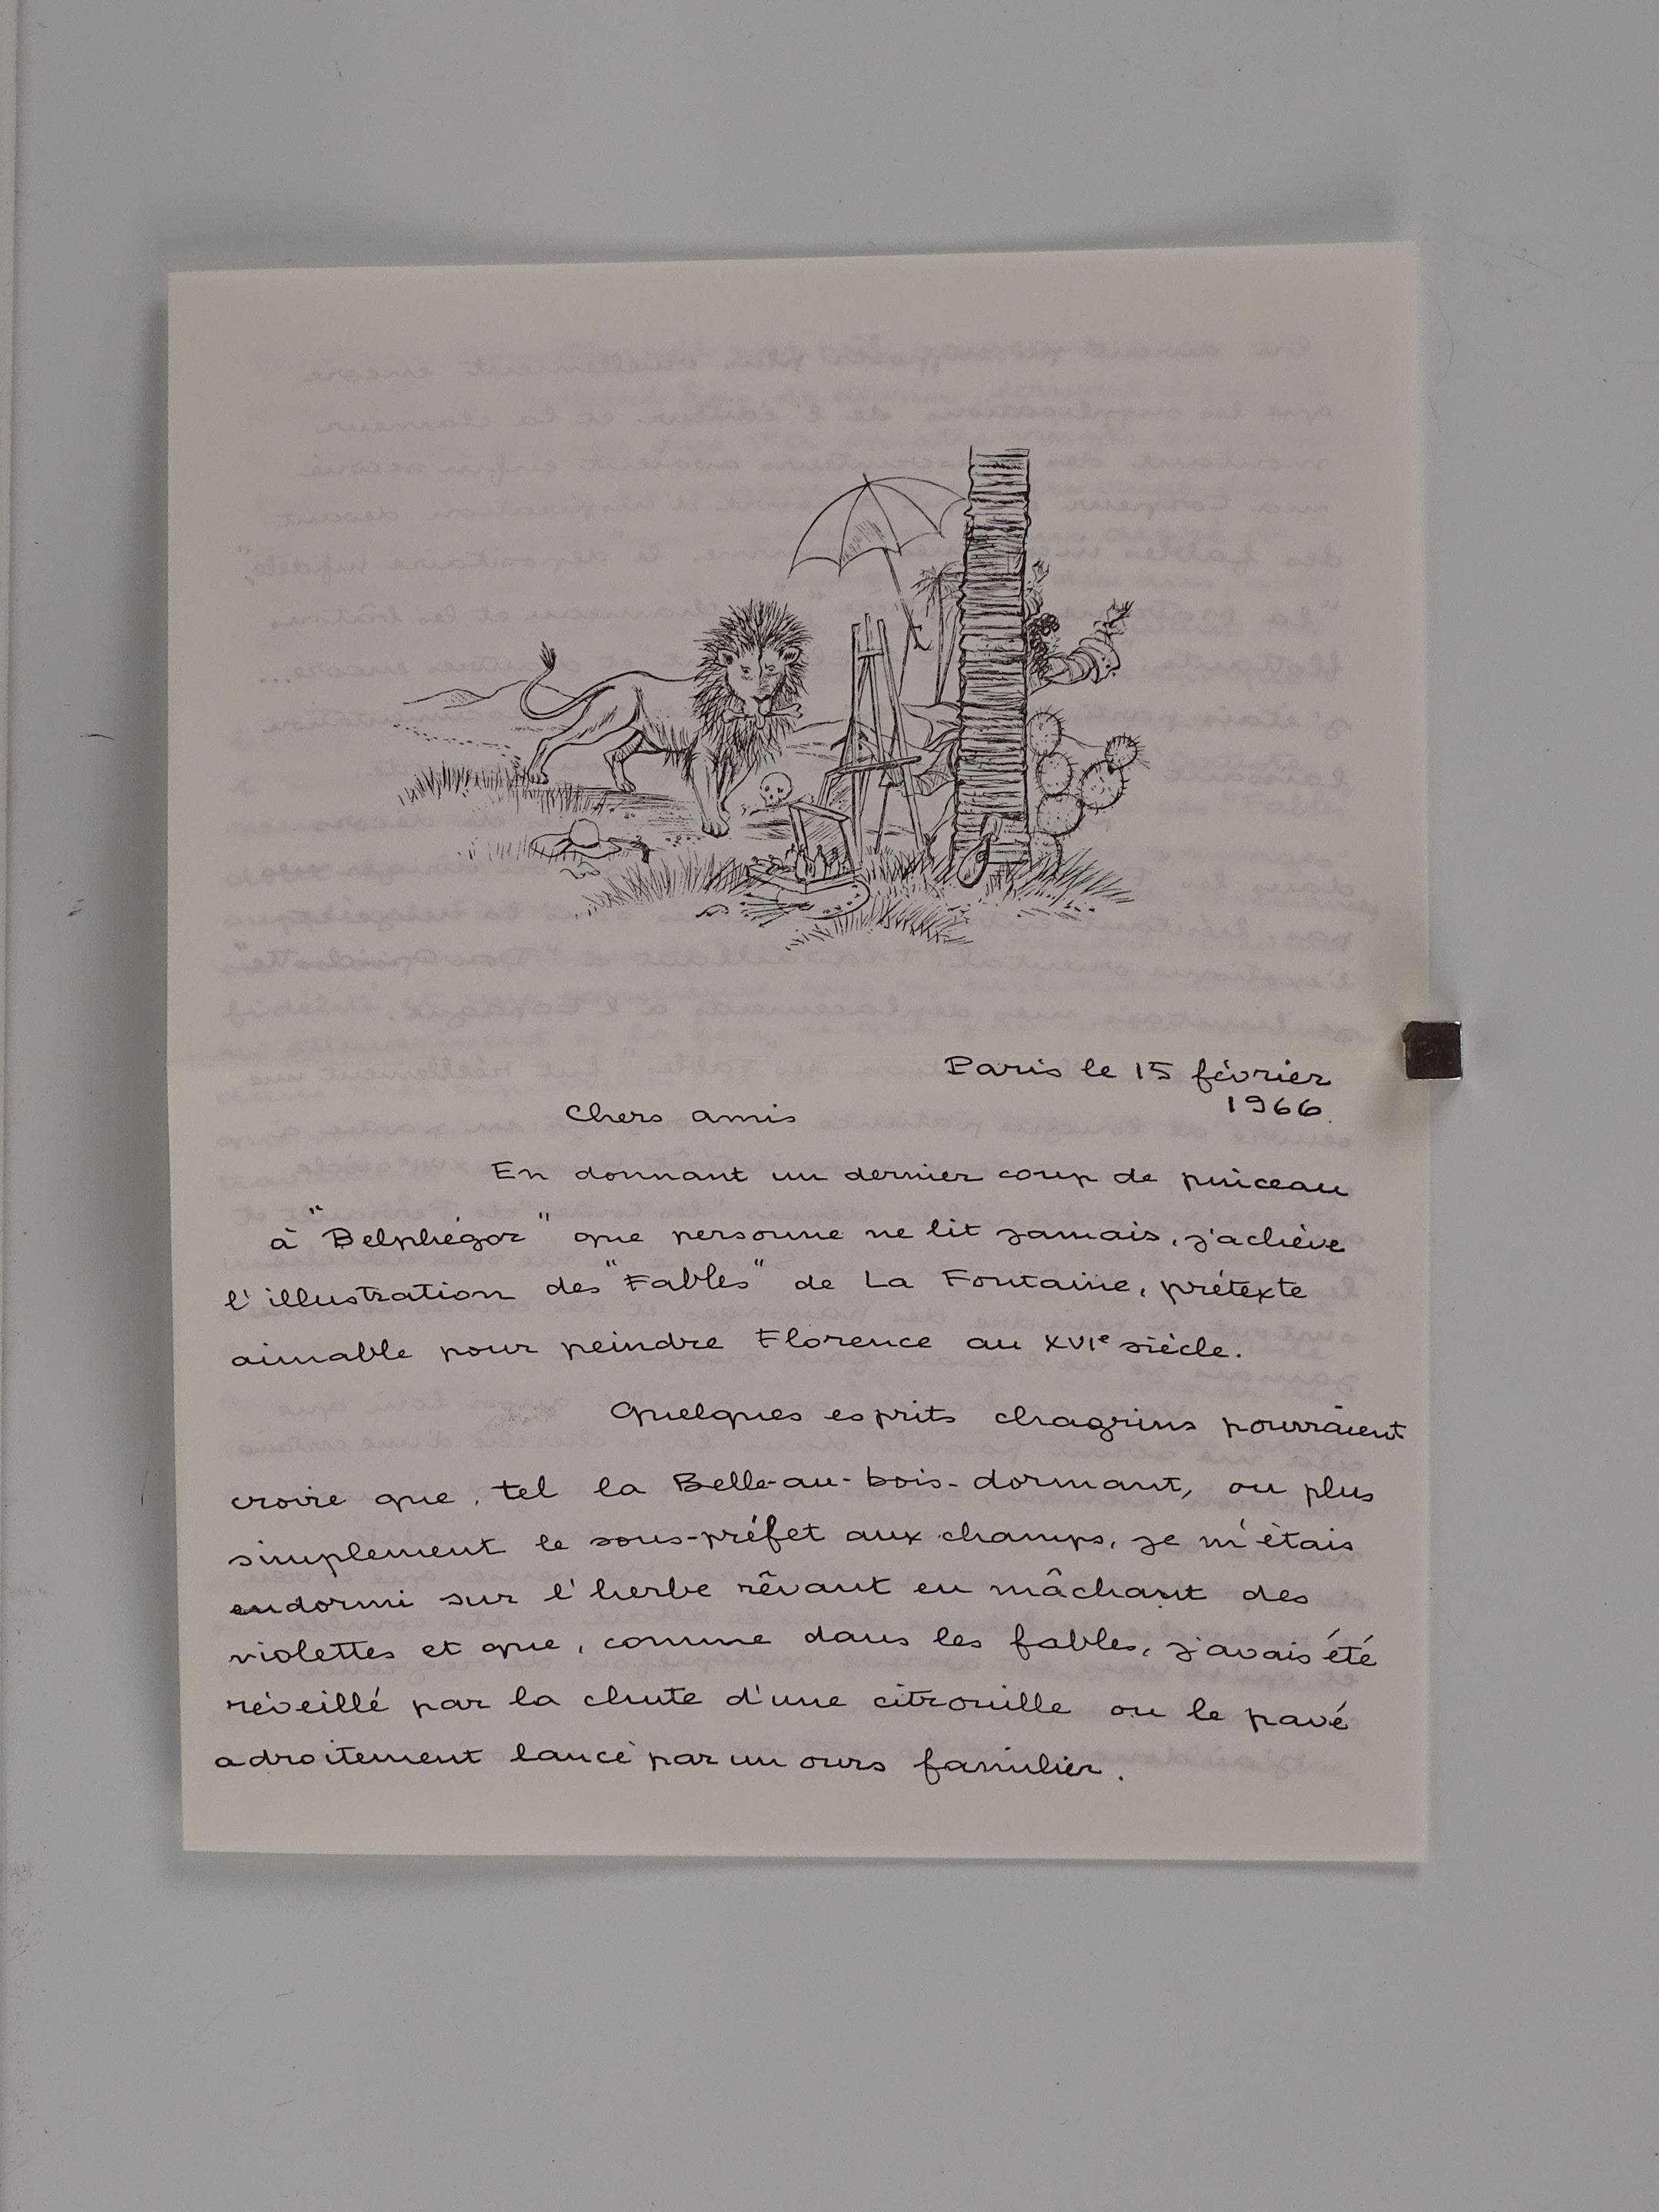 Paris le 15 février
1966.
Chers amis
En donnant un dernier coup de pinceau
à "Belphégor" que personne ne lit jamais, j'achève
l'illustration des "Fables" de La Fontaine, prétexte
aimable pour peindre Florence au XVIe siècle.
Quelques esprits chagrins pourraient
croire que, tel la Belle-au-bois-dormant, ou plus
simplement le sous-préfet aux champs, je m'étais
endormi sur l'herbe rêvant en mâchant des
violettes et que, comme dans les fables, j'avais été
réveillé par la chute d'une citrouille ou le pavé
adroitement lancé par un ours familier.